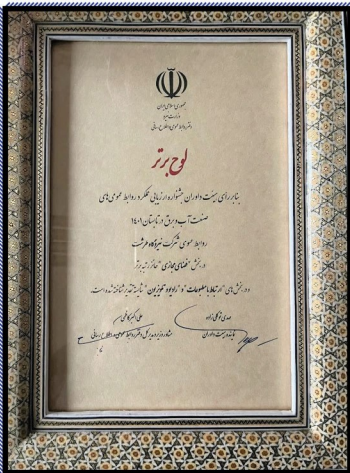 جمهوری اسلامی ایران
وزارت نیرو
دفتر روابط عمومی و اطلاع رسانی
لوح برتر
بنابر رای هیئت داوران جشنواره ارزیابی عملکرد روابط عمومی‌های
صنعت آب و برق در تابستان ۱۴۰۱
روابط عمومی شرکت
در بخش "فضای مجازی" حائز رتبه برتر
و در بخش‌های "ارتباط با مطبوعات" و "رادیو و تلویزیون" شایسته تقدیر شناخته شده است.
مهدی توکلی زاده
نماینده هیئت داوران
علی اکبر کاظمی
مشاور وزیر و مدیرکل دفتر روابط عمومی و اطلاع رسانی